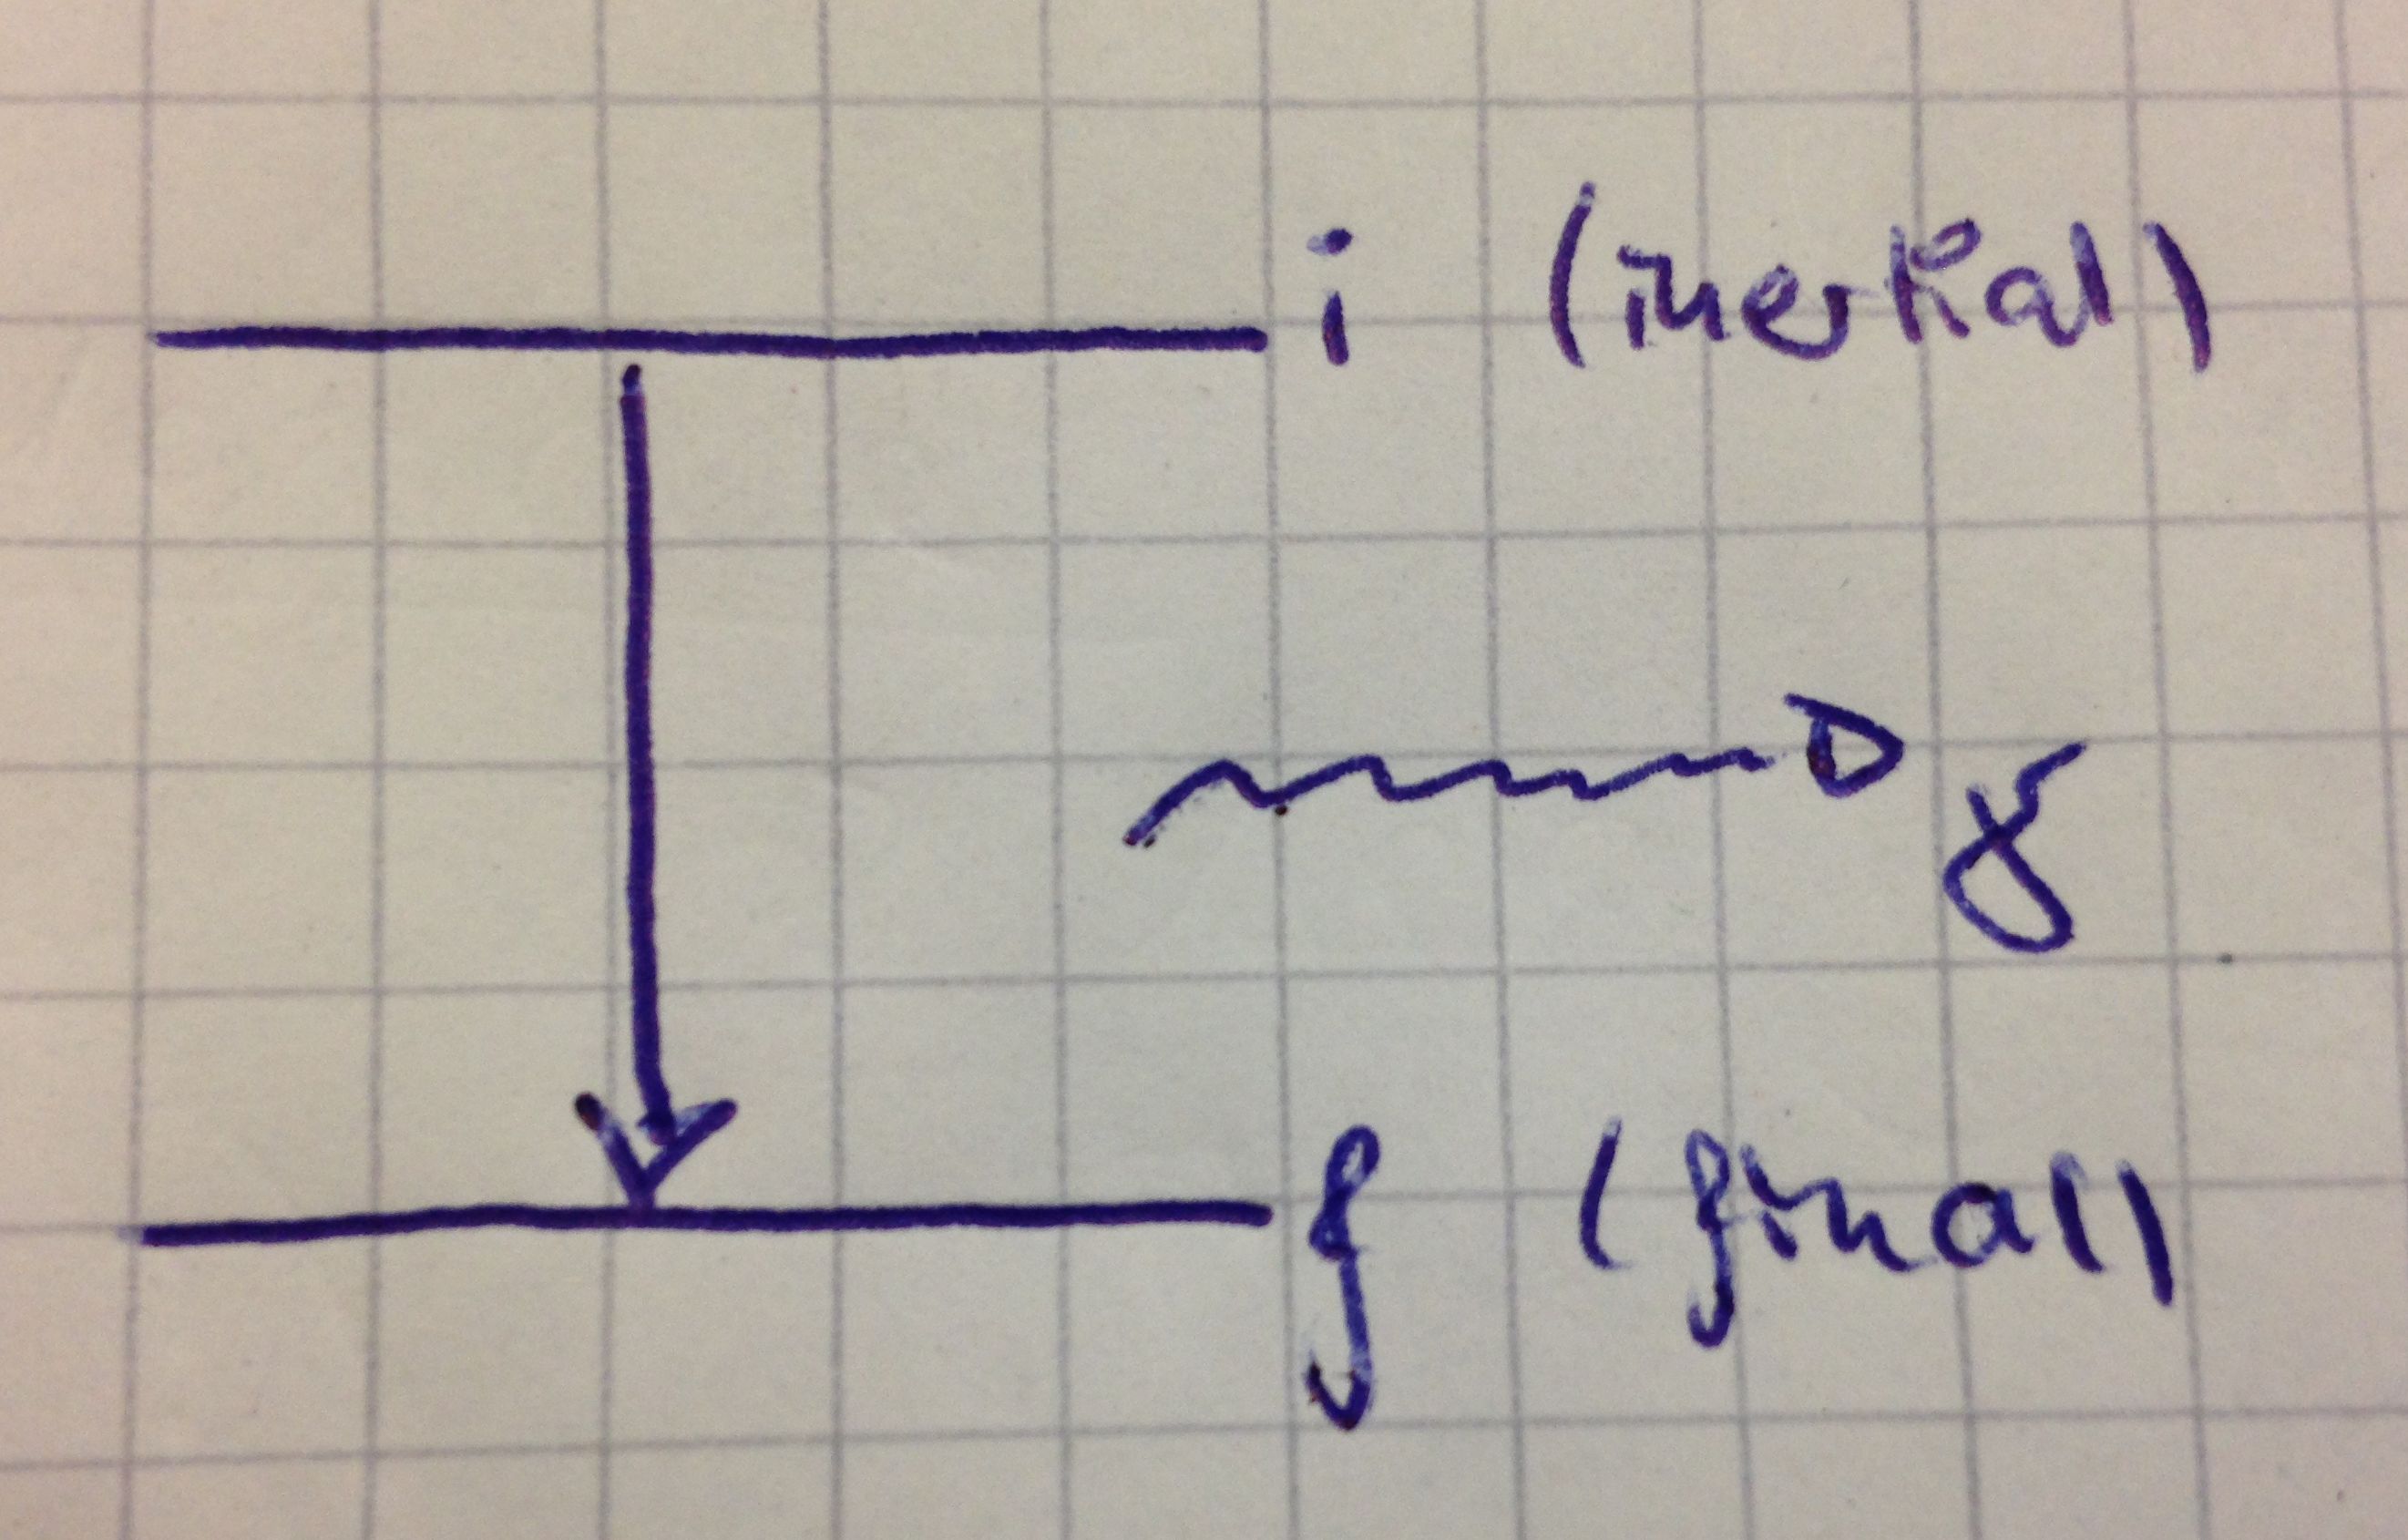 i (inertial)
γ
f (final)